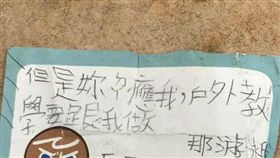 但是妳ㄅ應我,戶外教
學要跟我做
那游